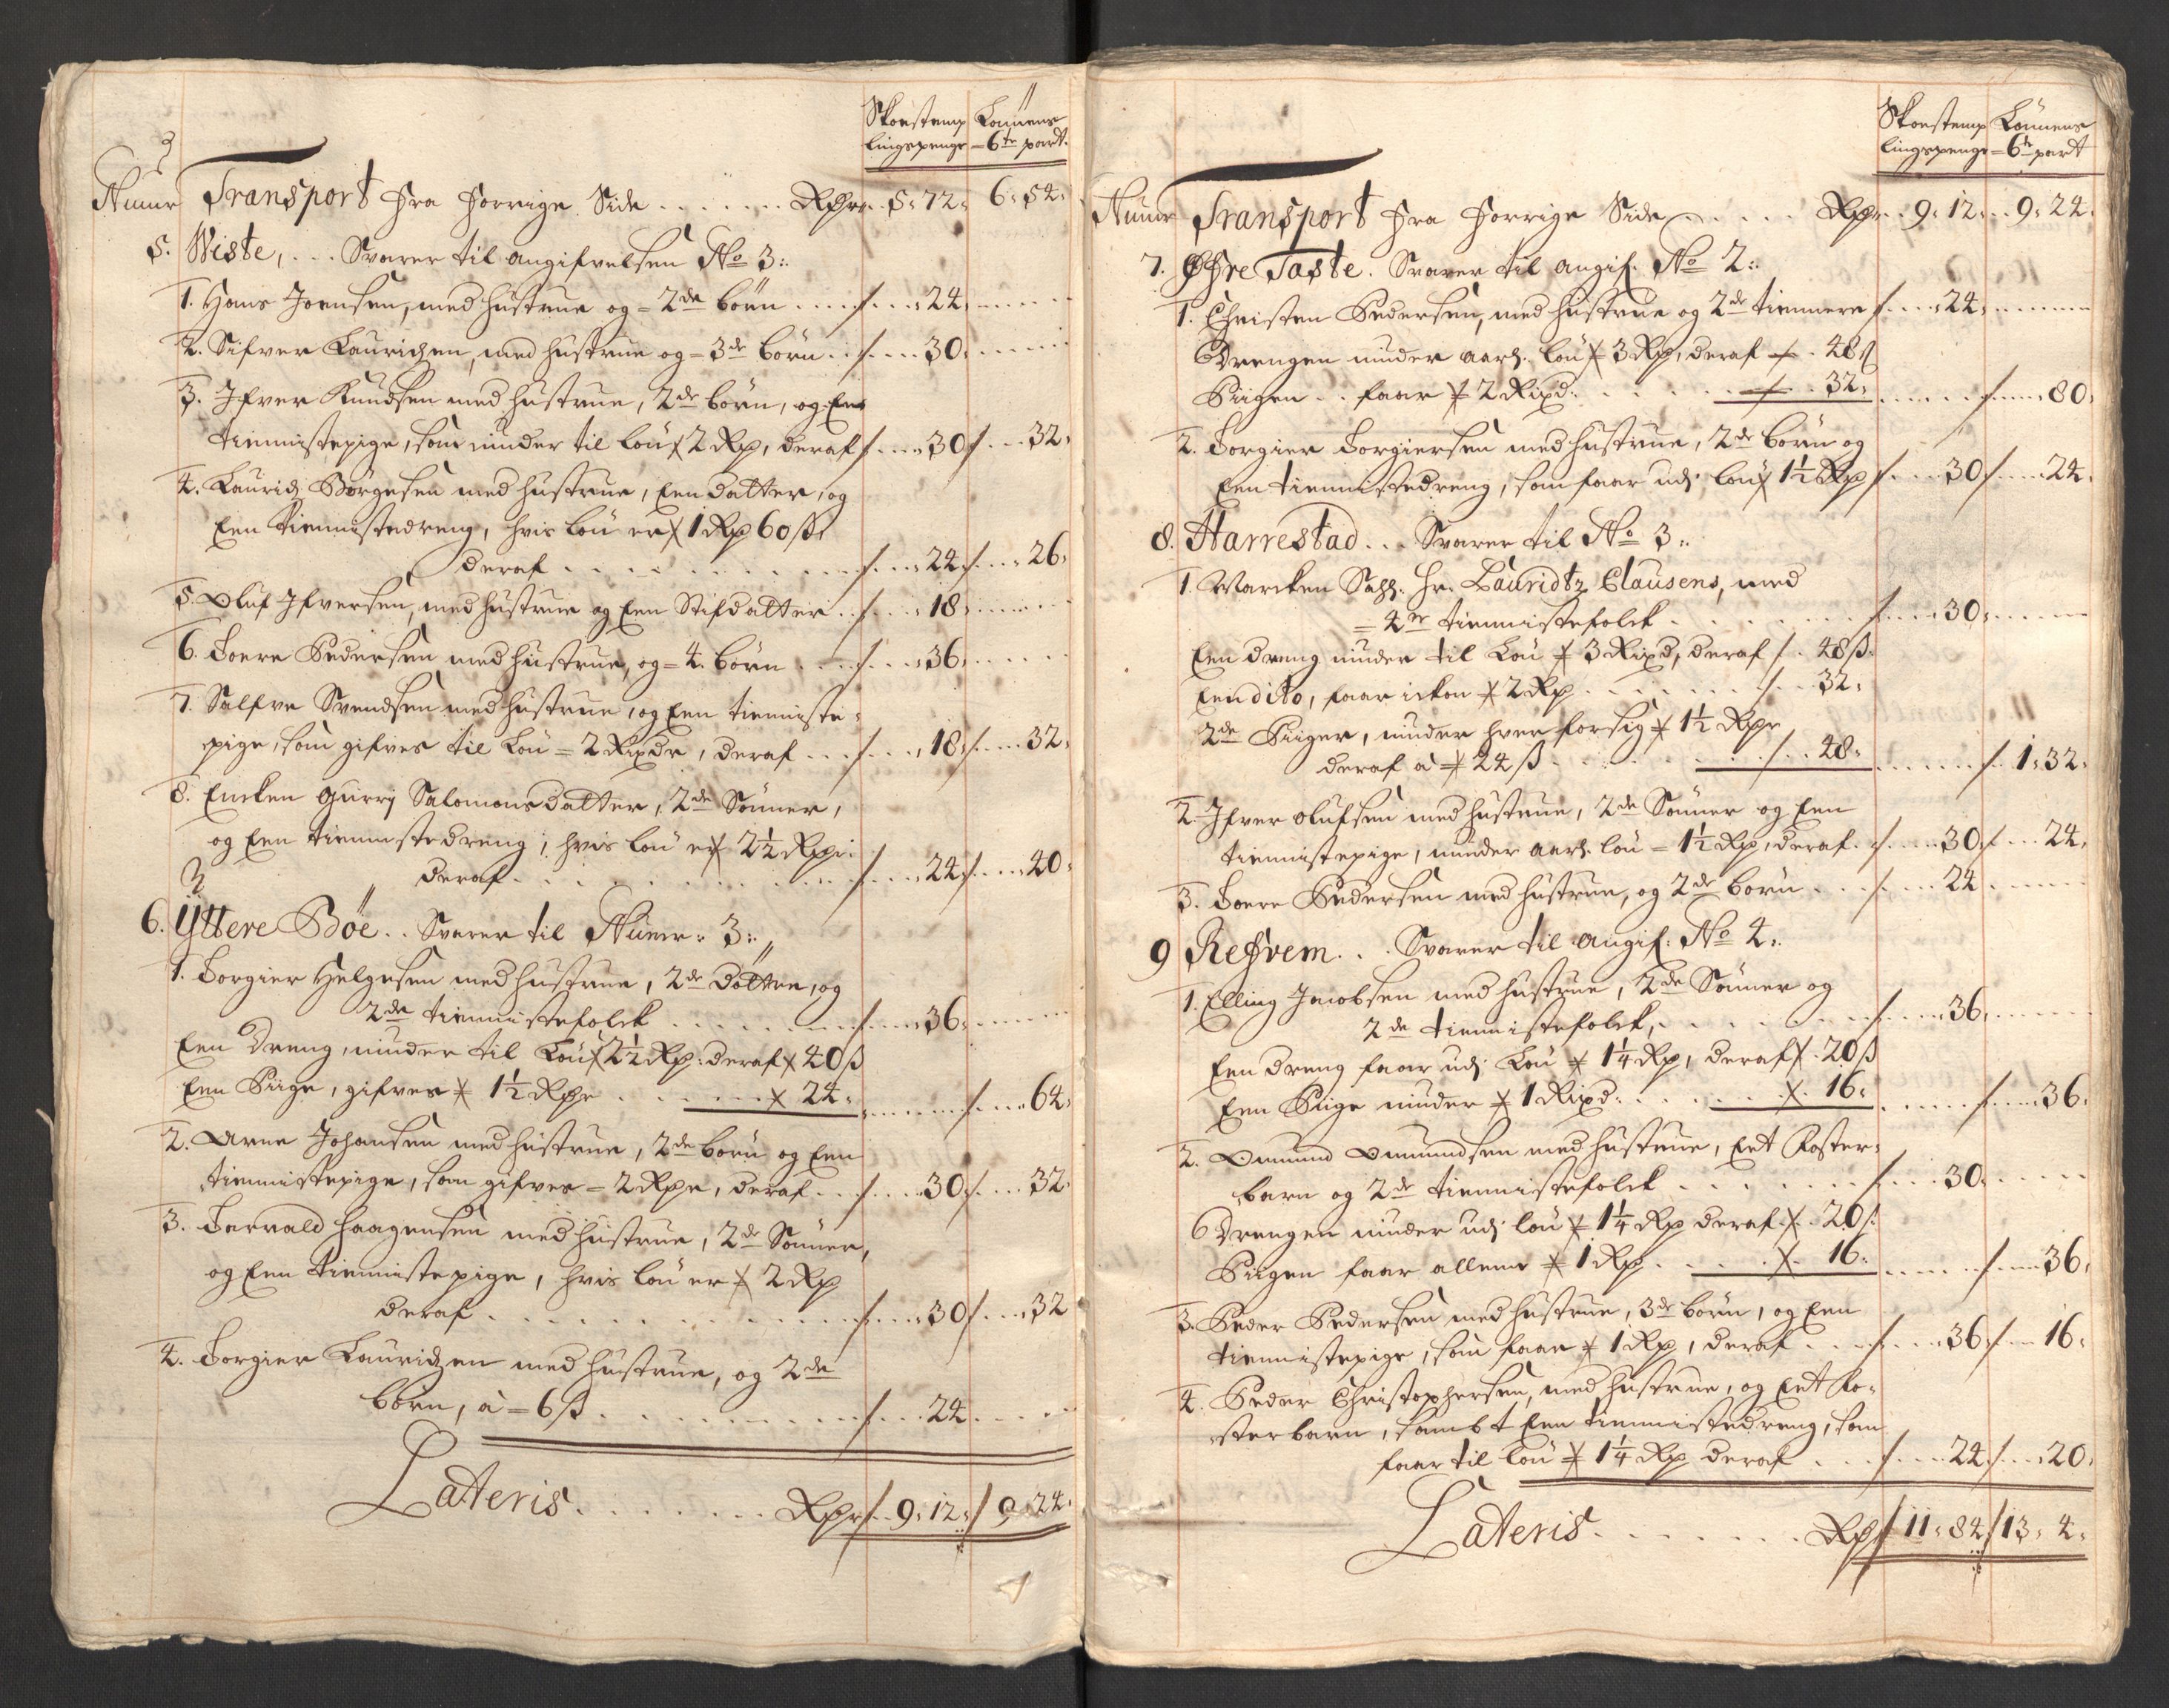 Skoestemp
lingspenge
Lönnens
6te part.
Numr Transport fra forrige Side ....... Rdr .. 5: 72: 6: 54:
5. Wiste, ... Svarer til angifvelsen No 3:
1. Hans Joensen, med hustrue og 2de börn .... 24:
2. Sifver Lauridzen, med hustrue og 3de börn .... 30:
3. Ifver Knudsen med hustrue, 2de börn, og Een
tiennistepige, som nÿder til lön 2 Rd, deraf .... 30 .... 32:
4. Laurids Börgesen med hustrue, Een datter, og
Een tiennistedreng, hvis lön er 1 Rd 60 ß
deraf .... 24 .... 26:
5. Oluf Ifversen, med hustrue og Een Stifdatter .... 18:
6. Torre Pedersen med hustrue, og 4. börn .... 36:
7. Salfve Svendsen med hustrue, og Een tienniste
pige, som gifves til Lön 2 Rixdr, deraf .... 18 .... 32:
8. Encken Gurrj Salomonsdatter, 2de Sönner,
og Een tiennistedreng, hvis lön er 2½ Rdr:
deraf .... 24 .... 40:
6. Yttere Böe .. Svarer til Numr: 3:
1. Torgier Helgesen med hustrue, 2de döttre, og
2de tiennistefolck .... 36:
Een Dreng, nÿder til Lön 2½ Rd: deraf 40 ß
Een Piige, gifves 1½ Rdr .... 24: .... 64:
2. Arne Johansen med hustrue, 2de börn og Een
tiennistepige, som gifves 2 Rdr, deraf .... 30 .... 32:
3. Torvald Haagensen med hustrue, 2de Sönner,
og Een tiennistepige, hvis lön er 2 Rd
deraf .... 30 .... 32
4. Torgier Lauridzen med hustrue, og 2de
börn, à 6 ß .... 24
Lateris ....... Rdr .. 9: 12: 9: 24:
Skoestemp
lingspenge
Lönnens
6te part
Numr Transport fra forrige Side ..... Rdr .. 9: 12: .. 9: 24:
7. Øfre Taste. Svarer til angif: No 2:
1. Christen Pedersen, med hustrue og 2de tiennere .... 24:
Drengen nÿder aarl: lön 3 Rd, deraf 48 ß
Piigen .. faar 2 Rixd: .... 32: .... 80:
2. Torgier Torgiersen med hustrue, 2de börn og
Een tiennistedreng, som faar udj lön 1½ Rd .... 30 .... 24:
8. Harrestad ... Svarer til No 3:
1. Marcken Sahl: Hr. Lauridtz Clausens, med
4re tiennistefolck .... 30:
Een dreng nÿder til Lön 3 Rixd, deraf 48 ß:
Een dito, faar ickon 2 Rd .... 32:
2de Piiger, nÿder hver for sig 1½ Rdr
deraf à 24 ß .... 48: .... 1: 32:
2. Ifver Olufsen med hustrue, 2de Sönner og Een
tiennistepige, nÿder aarl: lön 1½ Rd, deraf .... 30 .... 24:
3. Torre Pedersen med hustrue, og 2de börn .... 24
9 Refvem .. Svarer til angif: No 4:
1. Elling Jacobsen med hustrue, 2de Sönner og
2de tiennistefolck .... 36:
Een dreng faar udj Lön 1¼ Rd, deraf 20 ß
Een Piige nÿder 1 Rixd: .... 16: .... 36:
2. Omund Omundsen med hustrue, Eet Foster-
barn og 2de tiennistefolck .... 30:
Drengen nÿder udj lön 1¼ Rd deraf 20 ß:
Piigen faar alleene 1 Rd .... 16: .... 36:
3. Peder Pedersen med hustrue, 3de börn, og Een
tiennistepige, som faar 1 Rd, deraf .... 36 .... 16:
4. Peder Christophersen, med hustrue, og Eet Fo-
sterbarn, sambt Een tiennistedreng, som
faar til lön 1¼ Rd deraf .... 24 .... 20:
Lateris ...... Rdr 11: 84 13: 4: